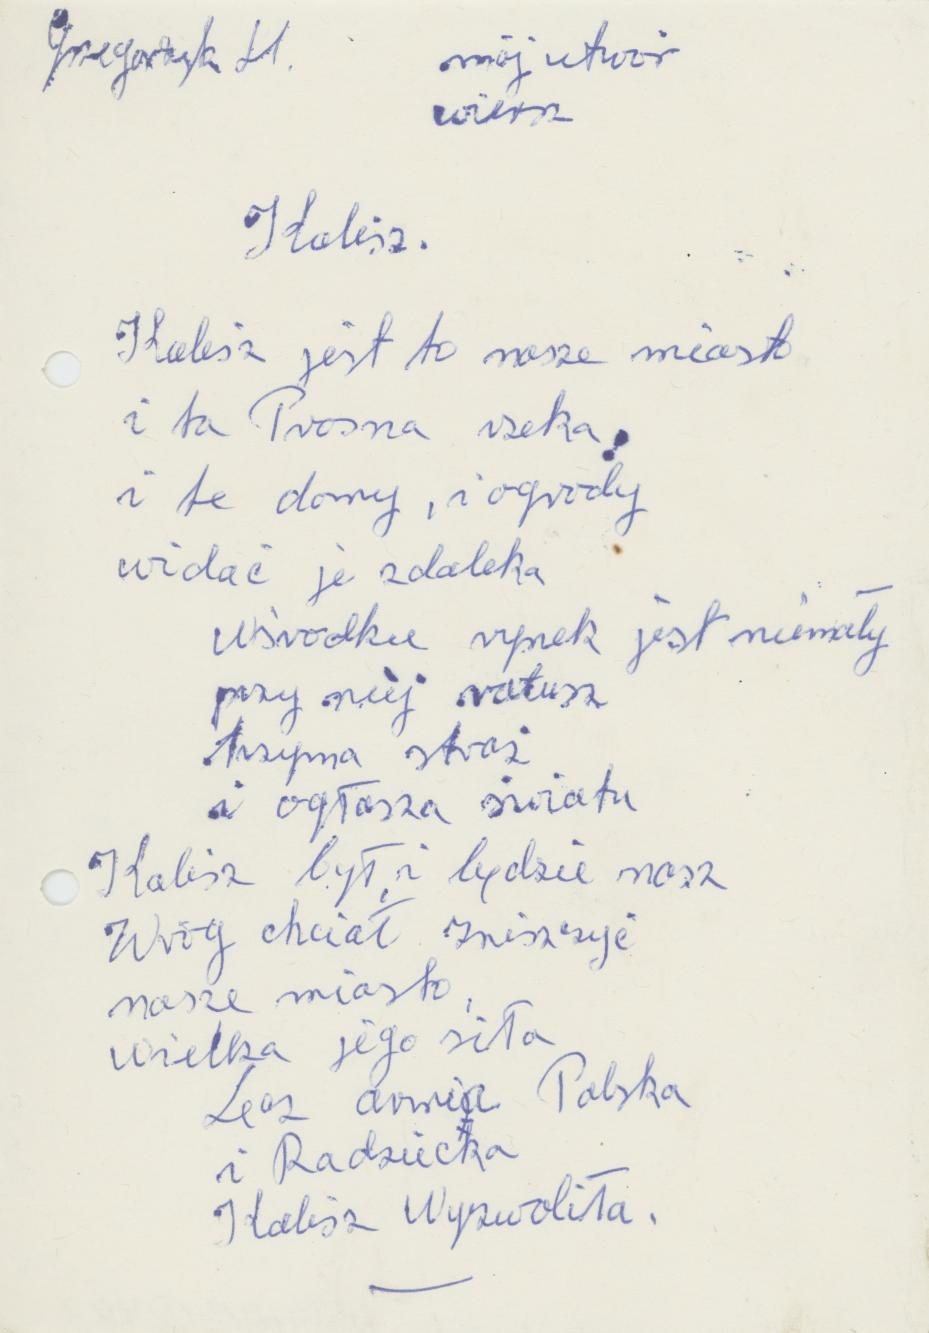 Gregorczyk H. mój utwór
wiersz
Kalisz.
Kalisz jest to nasze miasto
i ta Prosna rzeka,
i te domy, i ogrody
widać je zdaleka
Wśrodku rynek jest niemały
przy niej ratusz
trzyma straż
i ogłasza światu
Kalisz był, i będzie nasz
Wróg chciał zniszczyć
nasze miasto,
wielka jego siła
Lecz armia Polska
i Radziecka
Kalisz Wyzwoliła.